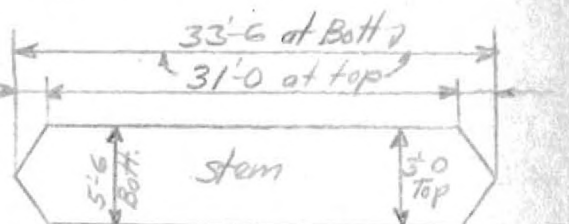 33'-6 at Bott.
31'-0 at top
5'-6
Bott.
stem
3'-0
Top